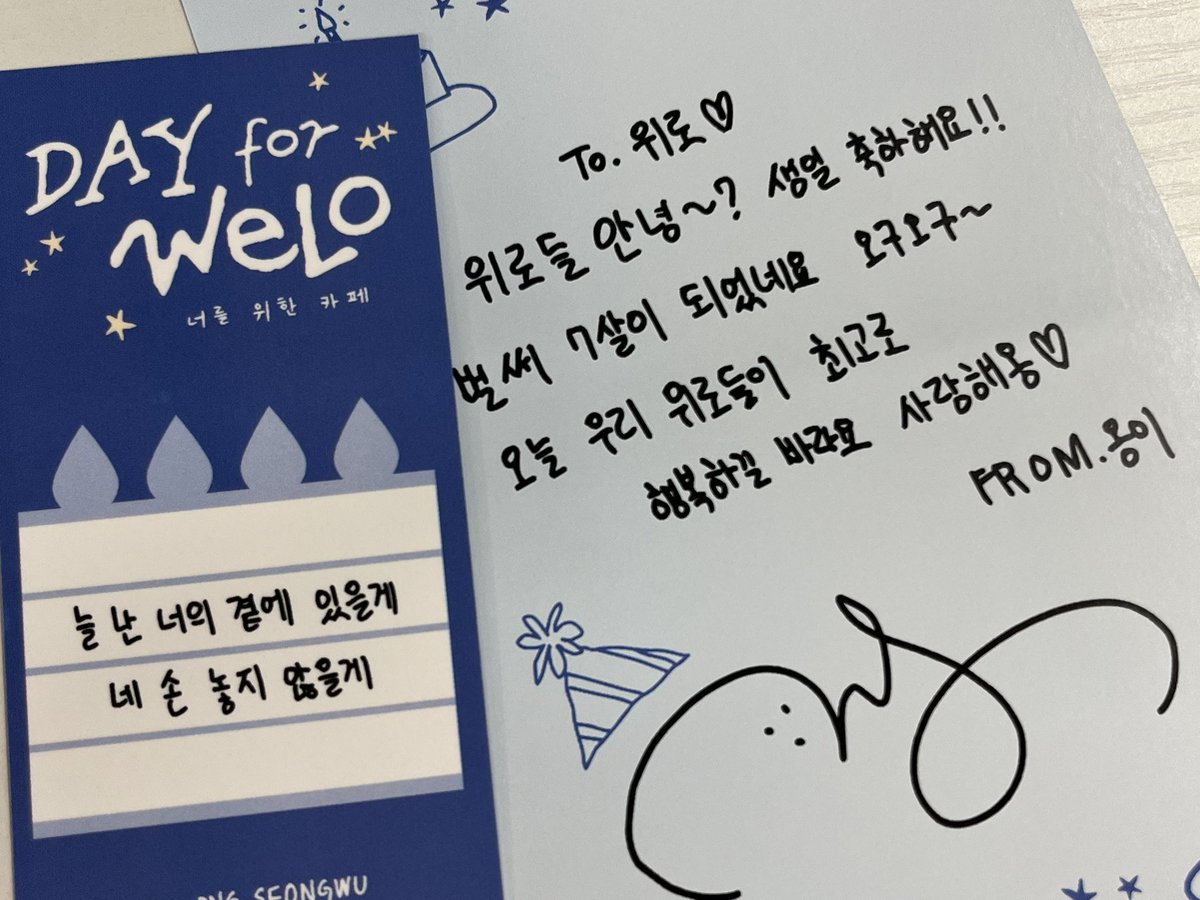 DAY for
WeLo
너를 위한 카페
늘 난 너의 곁에 있을게
네 손 놓지 않을게
ONG SEONGWU
To. 위로♡
위로들 안녕~? 생일 축하해요!!
벌써 7살이 되었네요 오구오구~
오늘 우리 위로들이 최고로
행복하낄 바라요 사랑해옹♡
FROM. 옹이